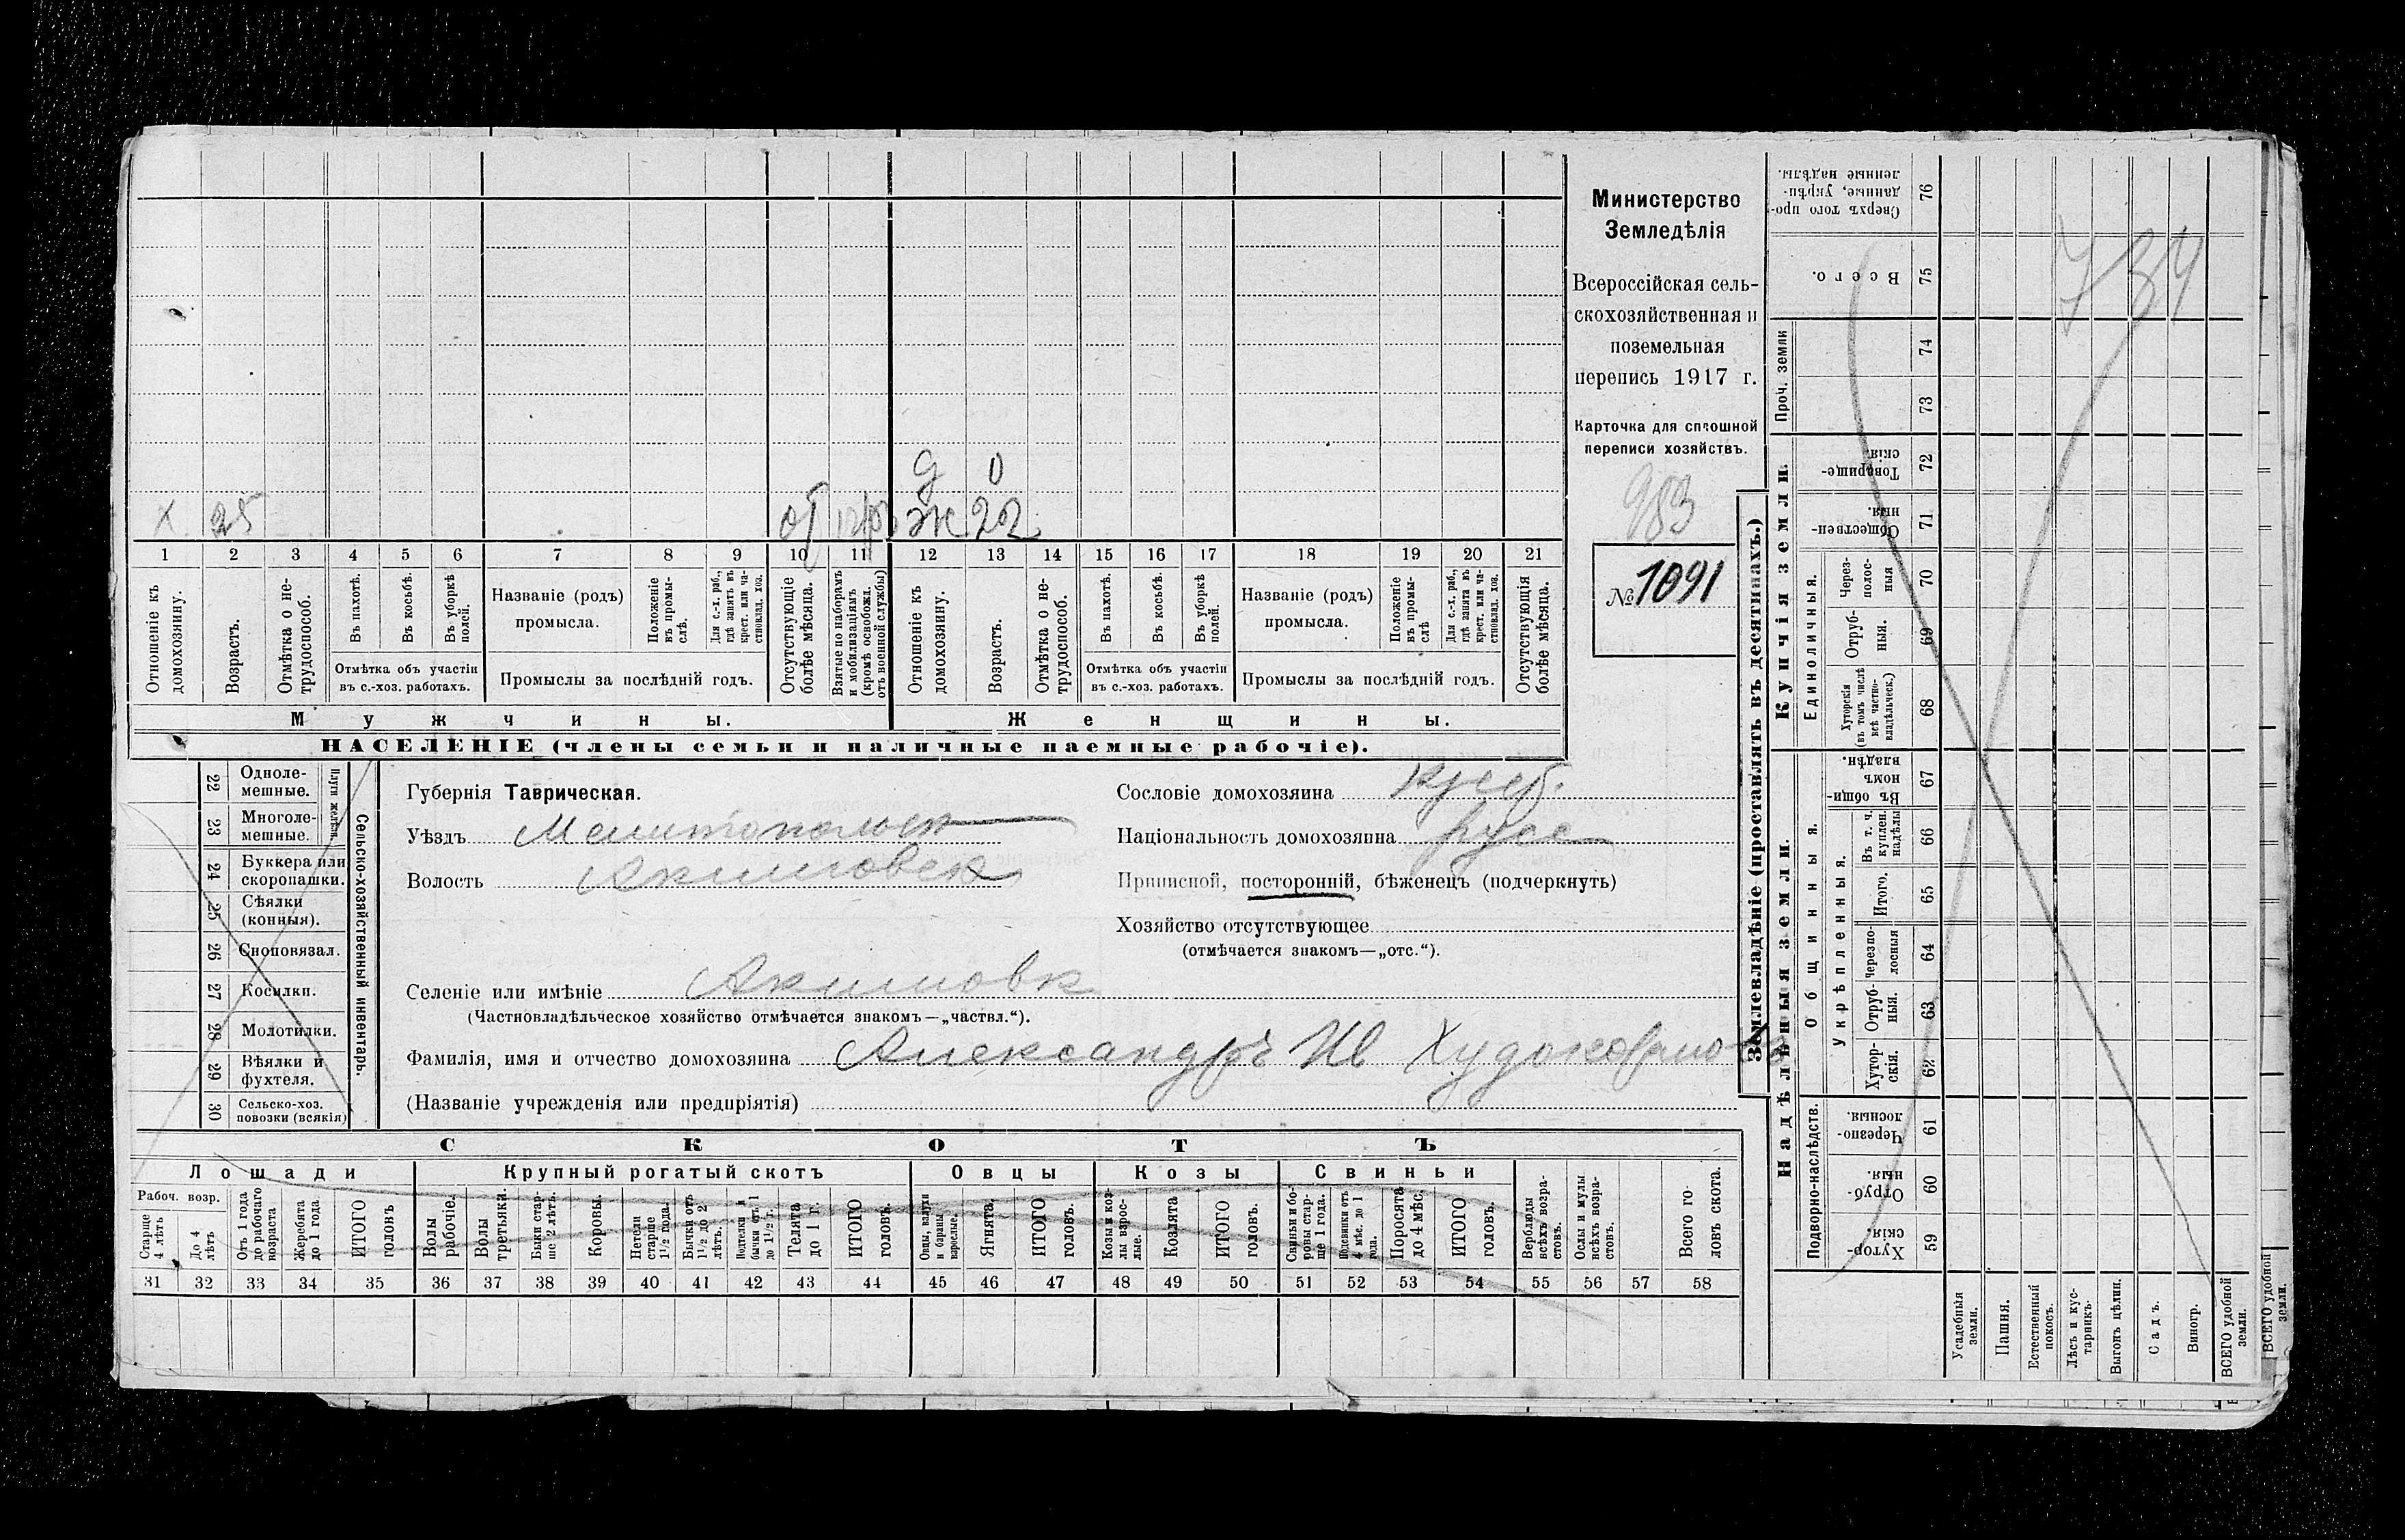 Министерство
Земледѣлія
Всероссійская сель-
скохозяйственная и
поземельная
перепись 1917 г.
Карточка для сплошной
переписи хозяйствъ.
983
№ 1091
734
д 0
х 25 ж 22
1 2 3 4 5 6 7 8 9 10 11 12 13 14 15 16 17 18 19 20 21
Отношеніе къ домохозяину.
Возрастъ.
Отмѣтка о не-трудоспособ.
Въ пахотѣ.
Въ косьбѣ.
Въ уборкѣ полей.
Отмѣтка объ участіи въ с.-хоз. работахъ.
Названіе (родъ) промысла.
Положеніе въ промы-слѣ.
Для с.-х. раб., гдѣ занятъ въ крест. или ча-стновлад. хоз.
Промыслы за послѣдній годъ.
Отсутствующіе болѣе мѣсяца.
Взятые по наборамъ и мобилизаціямъ (кромѣ освобожд. отъ военной службы)
Отношеніе къ домохозяину.
Возрастъ.
Отмѣтка о не-трудоспособ.
Въ пахотѣ.
Въ косьбѣ.
Въ уборкѣ полей.
Отмѣтка объ участіи въ с.-хоз. работахъ.
Названіе (родъ) промысла.
Положеніе въ промы-слѣ
Для с.-х. раб., гдѣ занята въ крест. или ча-стновлад. хоз.
Промыслы за послѣдній годъ.
Отсутствующія болѣе мѣсяца.
Мужчины. Женщины.
НАСЕЛЕНІЕ (члены семьи и наличные наемные рабочіе).
Сельско-хозяйственный инвентарь.
Плуги желѣзн.
22 Одноле-мешные.
23 Многоле-мешные.
24 Буккера или скоропашки.
25 Сѣялки (конныя).
26 Сноповязал.
27 Косилки.
28 Молотилки.
29 Вѣялки и фухтеля.
30 Сельско-хоз. повозки (всякія)
Губернія Таврическая.
Уѣздъ Мелитопольск
Волость Акимовск
Селеніе или имѣніе Акимовк
(Частновладѣльческое хозяйство отмѣчается знакомъ—„частвл.“).
Фамилія, имя и отчество домохозяина Александръ Ив Худокормов
(Названіе учрежденія или предпріятія)
Сословіе домохозяина
Національность домохозяина русс
Приписной, посторонній, бѣженецъ (подчеркнуть)
Хозяйство отсутствующее
(отмѣчается знакомъ—„отс.“).
СКОТЪ
Лошади Крупный рогатый скотъ Овцы Козы Свиньи
Рабоч. возр.
Старше 4 лѣтъ
До 4 лѣтъ
Отъ 1 года до рабочаго возраста
Жеребята до 1 года
ИТОГО головъ
Волы рабочіе.
Волы третьяки.
Быки стар-ше 2 лѣтъ.
Коровы.
Нетели старше 1½ года.
Бычки отъ 1½ до 2 лѣтъ.
Подтелки и бычки отъ 1 до 1½ г.
Телята до 1 г.
ИТОГО головъ.
Овцы, валухи и бараны взрослые.
Ягнята.
ИТОГО головъ.
Козы и коз-лы взрос-лые.
Козлята
ИТОГО головъ.
Свиньи и бо-ровы стар-ше 1 года.
Подсвинки отъ 4 мѣс. до 1 года.
Поросята до 4 мѣс.
ИТОГО головъ.
Верблюды всѣхъ возра-стовъ.
Ослы и мулы всѣхъ возра-стовъ.
Всего го-ловъ скота.
31 32 33 34 35 36 37 38 39 40 41 42 43 44 45 46 47 48 49 50 51 52 53 54 55 56 57 58
Землевладѣніе (проставлять въ десятинахъ.)
Купчія земли.
Надѣльныя земли.
Сверхъ того про-данные, укрѣп-ленные надѣлы. 76
Всего. 75
Проч. земли
74
73
Товарище-скія. 72
Обществен-ныя. 71
Единоличныя.
Через-полос-ныя 70
Отруб-ныя. 69
Хуторскія (въ томъ числѣ всѣ частно-владѣльческ.) 68
Общинныя.
Въ общи-номъ владѣн. 67
Укрѣпленныя.
Въ т. ч. куплен. надѣлы 66
Итого. 65
Черезпо-лосныя 64
Отруб-ныя. 63
Хутор-скія. 62
Подворно-наслѣдств.
Черезпо-лосныя. 61
Отруб-ныя. 60
Хутор-скія. 59
Усадебныя земли.
Пашня.
Естественный покосъ.
Лѣсъ и кус-тарникъ.
Выгонъ цѣлин.
Садъ.
Виногр.
ВСЕГО удобной земли.
ВСЕГО удобной земли.